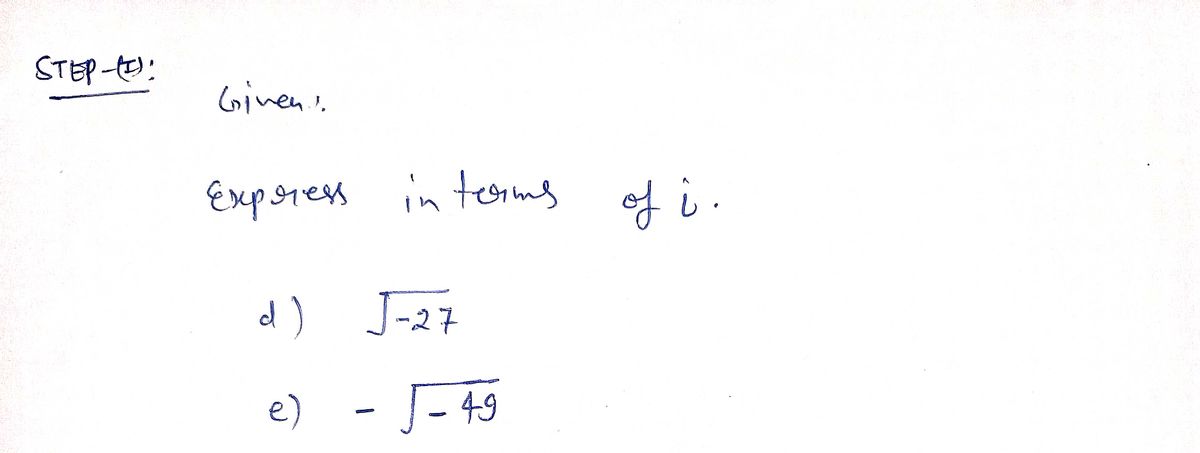 STEP-(I):
Given:
Express in terms of i.
d) √-27
e) - √-49